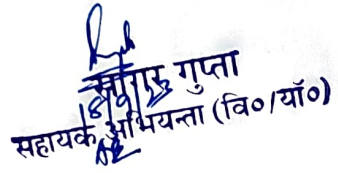 सागर गुप्ता
सहायक अभियन्ता (वि०/याॅ०)